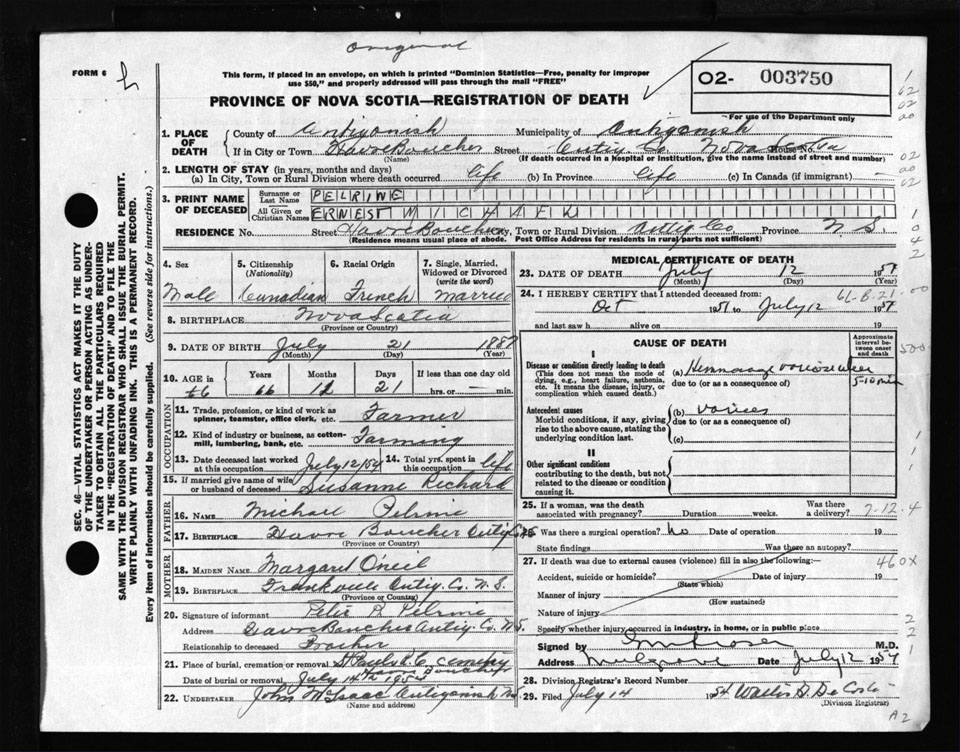 Original
FORM 6
This form, if placed in an envelope, on which is printed "Dominion Statistics—Free, penalty for improper
use $50," and properly addressed will pass through the mail "FREE"
PROVINCE OF NOVA SCOTIA—REGISTRATION OF DEATH
02- 003750
For use of the Department only
1. PLACE OF DEATH County of Antigonish Municipality of Antigonish
If in City or Town Havre Boucher Street Antig Co House No. Nova Scotia
(Name) (If death occurred in a hospital or institution, give the name instead of street and number)
2. LENGTH OF STAY (in years, months and days)
(a) In City, Town or Rural Division where death occurred. life (b) In Province life (c) In Canada (if immigrant)
3. PRINT NAME OF DECEASED Surname or Last Name PELRINE
All Given or Christian Names ERNEST MICHAEL
RESIDENCE No. Street Havre Boucher City, Town or Rural Division Antig Co Province N S
(Residence means usual place of abode. Post Office Address for residents in rural parts not sufficient)
4. Sex Male
5. Citizenship (Nationality) Canadian
6. Racial Origin French
7. Single, Married, Widowed or Divorced (write the word) Married
8. BIRTHPLACE Nova Scotia
(Province or Country)
9. DATE OF BIRTH July 21
(Month) (Day) (Year)
10. AGE in 66 Years 66 Months 12 Days 21 If less than one day old hrs. or min.
OCCUPATION
11. Trade, profession, or kind of work as spinner, teamster, office clerk, etc. Farmer
12. Kind of industry or business, as cotton-mill, lumbering, bank, etc. Farming
13. Date deceased last worked at this occupation July 12/54 14. Total yrs. spent in this occupation life
15. If married give name of wife or husband of deceased Susanne Richard
FATHER
16. NAME Michael Pelrine
17. BIRTHPLACE Havre Boucher Antig Co NS
(Province or Country)
MOTHER
18. MAIDEN NAME Margaret O'neil
19. BIRTHPLACE Frankville Antig. Co. N. S.
(Province or Country)
20. Signature of informant Peter R Pelrine
Address Havre Boucher Antig Co. N.S.
Relationship to deceased Brother
21. Place of burial, cremation or removal St Pauls R.C. cemetery
Havre Boucher
Date of burial or removal July 14th 1954
22. UNDERTAKER John McIsaac Antigonish NS
(Name and address)
MEDICAL CERTIFICATE OF DEATH
23. DATE OF DEATH July 12 195
(Month) (Day) (Year)
24. I HEREBY CERTIFY that I attended deceased from:
Oct 195 to July 12 195
and last saw h alive on 19
CAUSE OF DEATH
Approximate interval between onset and death
I
Disease or condition directly leading to death
(This does not mean the mode of dying, e.g., heart failure, asthenia, etc. It means the disease, injury, or complication which caused death.)
(a)
due to (or as a consequence of)
5-10 min
Antecedent causes
Morbid conditions, if any, giving rise to the above cause, stating the underlying condition last.
(b)
due to (or as a consequence of)
(c)
II
Other significant conditions
contributing to the death, but not related to the disease or condition causing it.
25. If a woman, was the death associated with pregnancy? Duration weeks. Was there a delivery?
7-12-4
26. Was there a surgical operation? no Date of operation 19
State findings Was there an autopsy?
27. If death was due to external causes (violence) fill in also the following:—
460X
Accident, suicide or homicide? Date of injury 19
(State which)
Manner of injury
(How sustained)
Nature of injury
Specify whether injury occurred in industry, in home, or in public place
Signed by M.D.
Address Mulgrave Date July 12 1954
28. Division Registrar's Record Number
29. Filed July 14 1954 Wallis D. DeCoste
(Division Registrar)
A2
SEC. 46—VITAL STATISTICS ACT MAKES IT THE DUTY
OF THE UNDERTAKER OR PERSON ACTING AS UNDER-
TAKER TO OBTAIN ALL THE PARTICULARS REQUIRED
IN THE "REGISTRATION OF DEATH" AND TO FILE THE
SAME WITH THE DIVISION REGISTRAR WHO SHALL ISSUE THE BURIAL PERMIT.
WRITE PLAINLY WITH UNFADING INK. THIS IS A PERMANENT RECORD.
Every item of information should be carefully supplied. (See reverse side for instructions.)